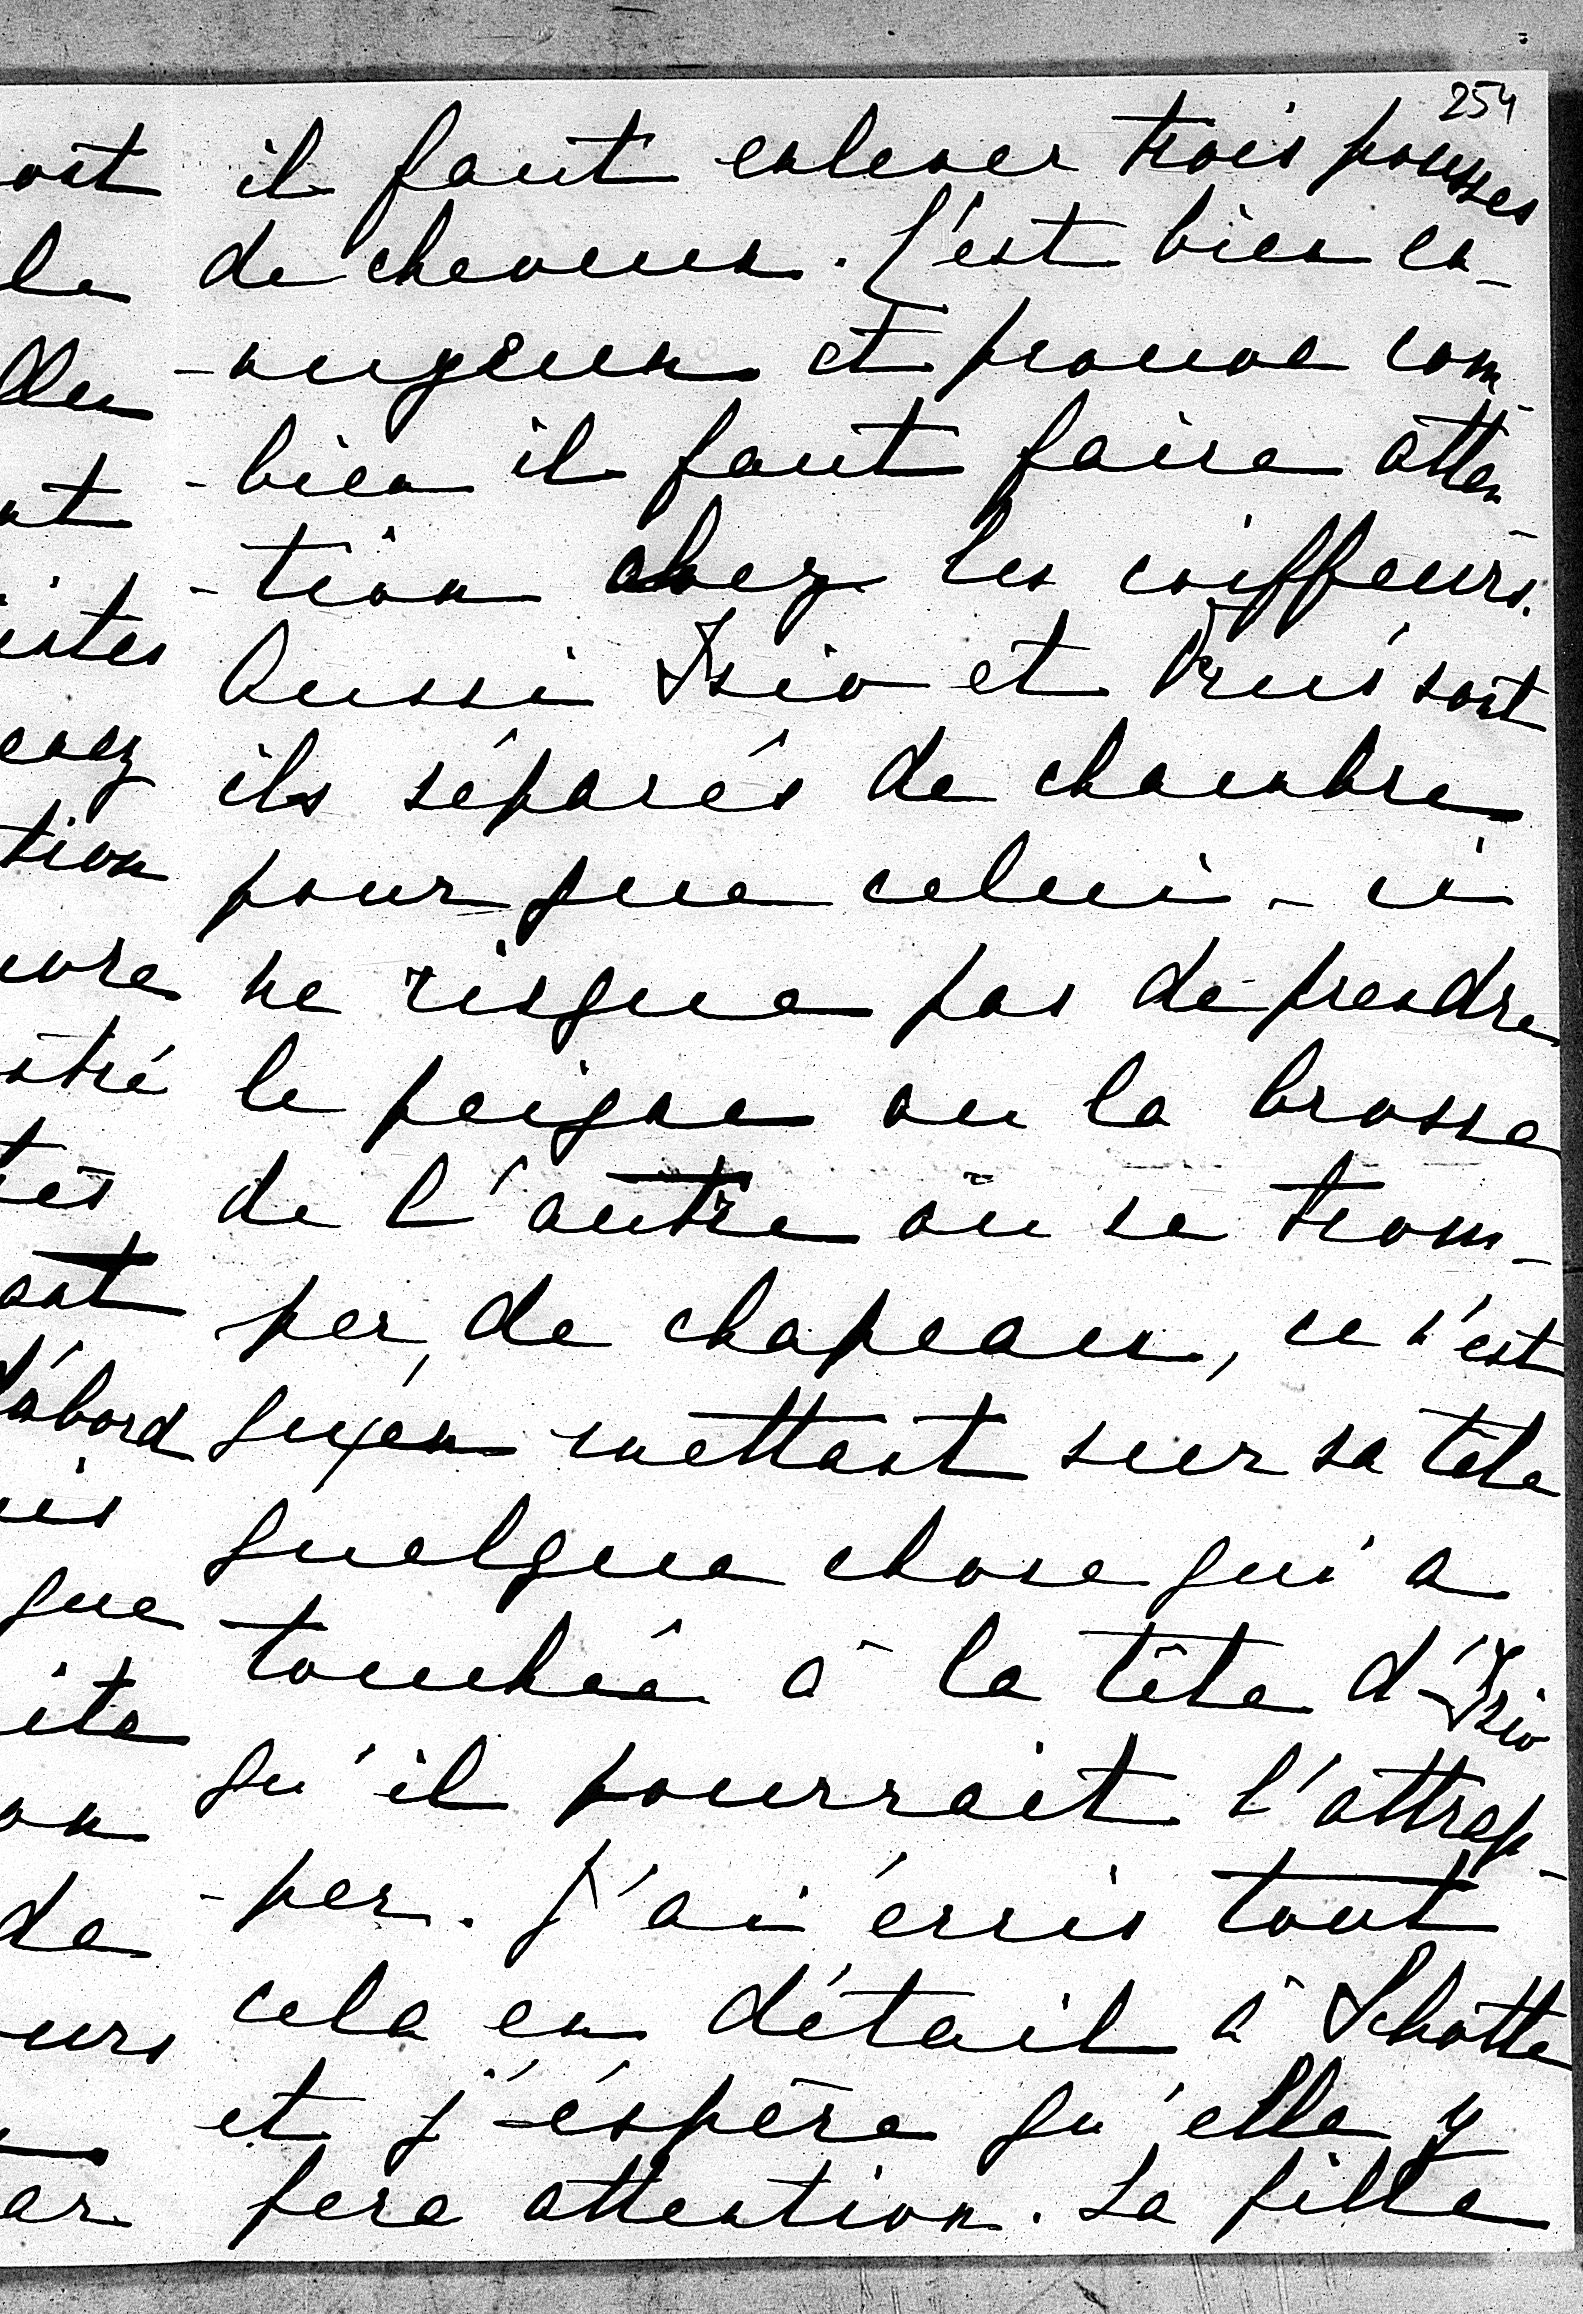 254
il faut enlever trois pousses
de cheveux. C'est bien en-
-nuyeux et prouve com-
-bien il faut faire atten-
-tion chez les coiffeurs.
Aussi Izio et Druis sont
ils séparés de chambre
pour que celui-ci
ne risque pas de prendre
le peigne ou la brosse
de l'autre ou se trom-
per de chapeau, ce n'est
qu'en mettant sur sa tête
quelque chose qui a
touché à la tête d'Izio
qu'il pourrait l'attrap-
-per. J'ai écris tout
cela en détail à Schotte
et j'éspère qu'elle y
fera attention. La fille